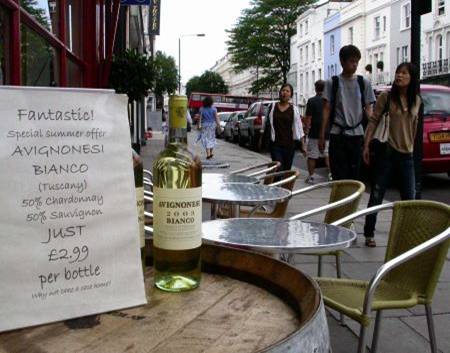 Fantastic!
Special summer offer
AVIGNONESI
BIANCO
(Tuscany)
50% Chardonnay
50% Sauvignon
JUST
£2.99
per bottle
Why not take a case home!
AVIGNONESI
2003
BIANCO